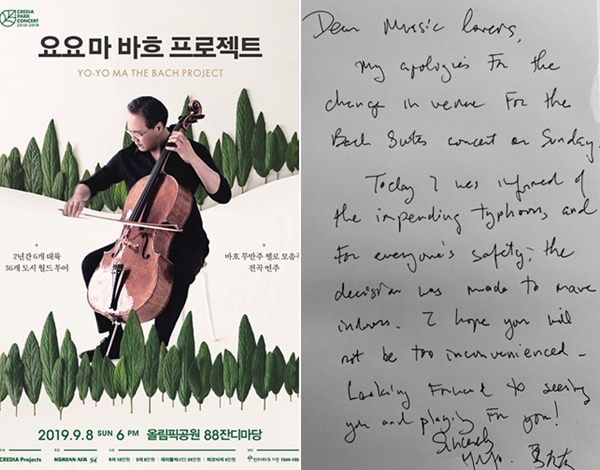 CREDIA
PARK
CONCERT
요요 마 바흐 프로젝트
YO-YO MA THE BACH PROJECT
2년간 6개 대륙
36개 도시 월드 투어
바흐 무반주 첼로 모음
전곡 연주
2019.9.8 SUN 6 PM 올림픽공원 88잔디마당
CREDIA Projects
Dear Music lovers,
My apologies for the
change in venue for the
Bach Suites concert on Sunday.
Today I was informed of
the impending typhoon, and
for everyone's safety, the
decision was made to move
indoors. I hope you will
not be too inconvenienced.
Looking forward to seeing
you and playing for you!
Sincerely
Yo-Yo